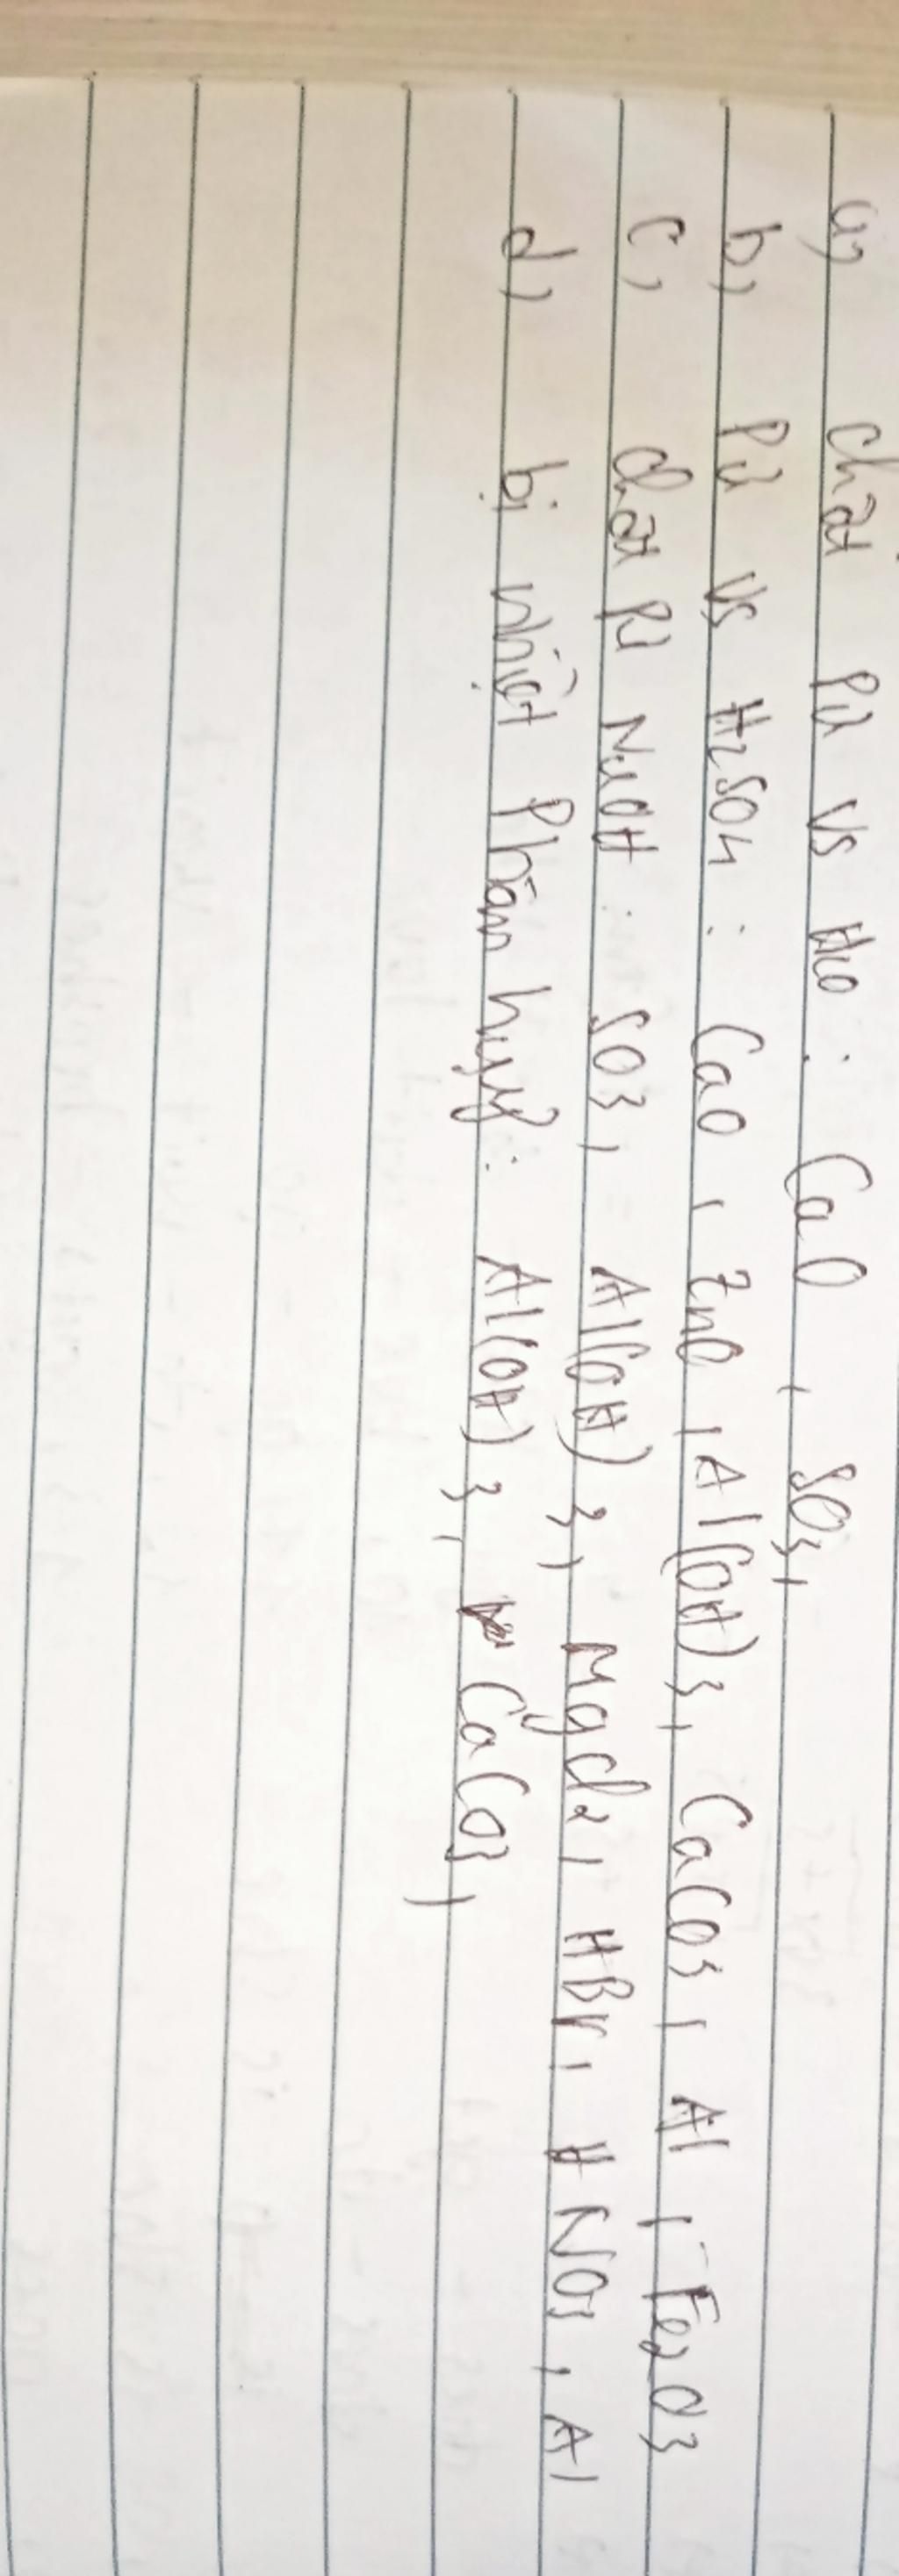 a, chất Pư vs H2O : CaO , SO3,
b, Pư vs H2SO4 : CaO , ZnO , Al(OH)3, CaCO3 , Al , Fe2O3
c, chất Pư NaOH : SO3, Al(OH)3, MgCl2, HBr, HNO3, Al
d, bị nhiệt Phân hủy : Al(OH)3, CaCO3,